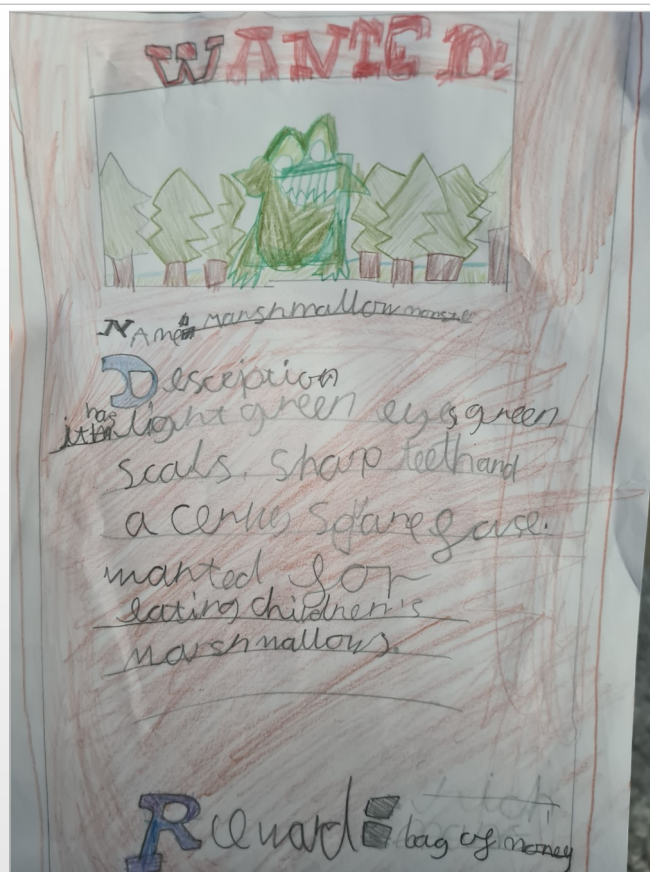 WANTED:
NAme: Marshmallow monster
Description
it has light green eyes green
scals. sharp teeth and
a square fase.
wanted for
eating children's
marshmallows.
Reward: bag of money